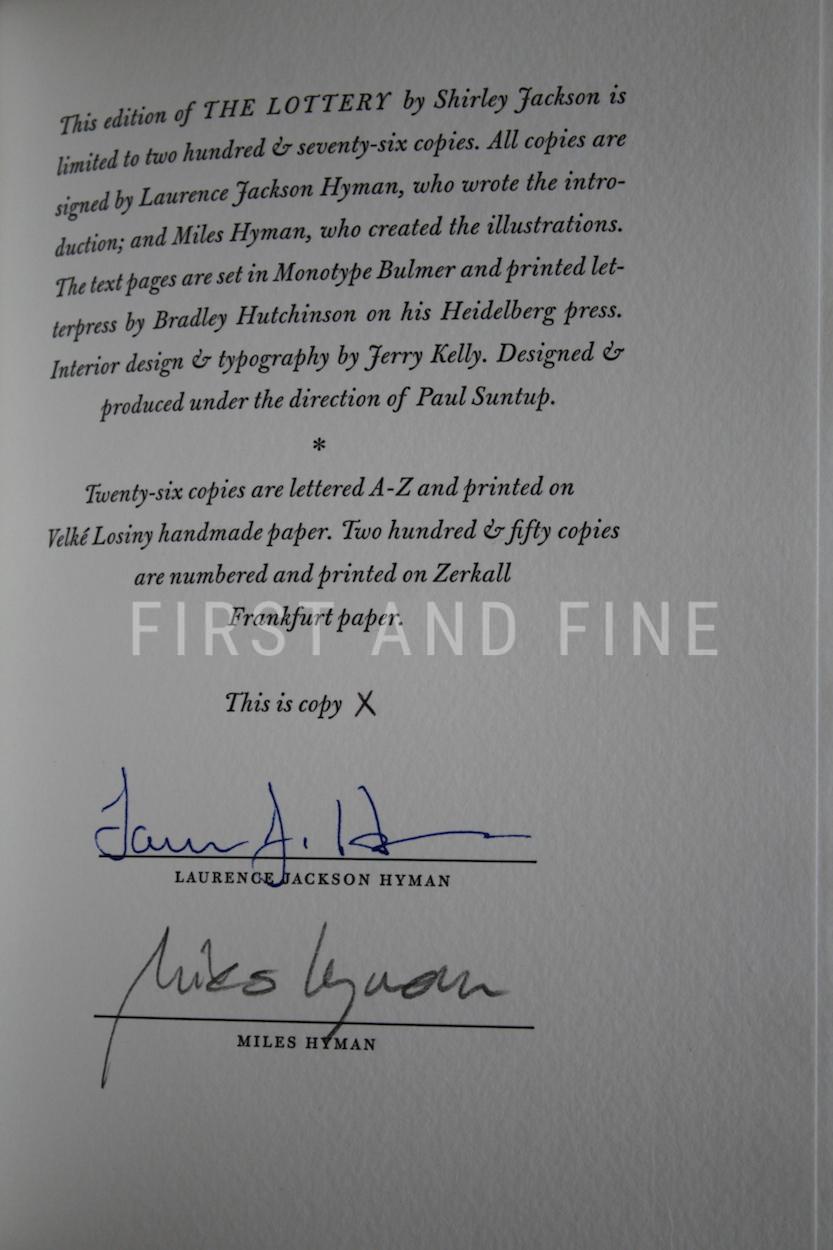 This edition of THE LOTTERY by Shirley Jackson is
limited to two hundred & seventy-six copies. All copies are
signed by Laurence Jackson Hyman, who wrote the intro-
duction; and Miles Hyman, who created the illustrations.
The text pages are set in Monotype Bulmer and printed let-
terpress by Bradley Hutchinson on his Heidelberg press.
Interior design & typography by Jerry Kelly. Designed &
produced under the direction of Paul Suntup.
*
Twenty-six copies are lettered A-Z and printed on
Velké Losiny handmade paper. Two hundred & fifty copies
are numbered and printed on Zerkall
Frankfurt paper.
FIRST AND FINE
This is copy X
Laurence J. Hyman
LAURENCE JACKSON HYMAN
Miles Hyman
MILES HYMAN